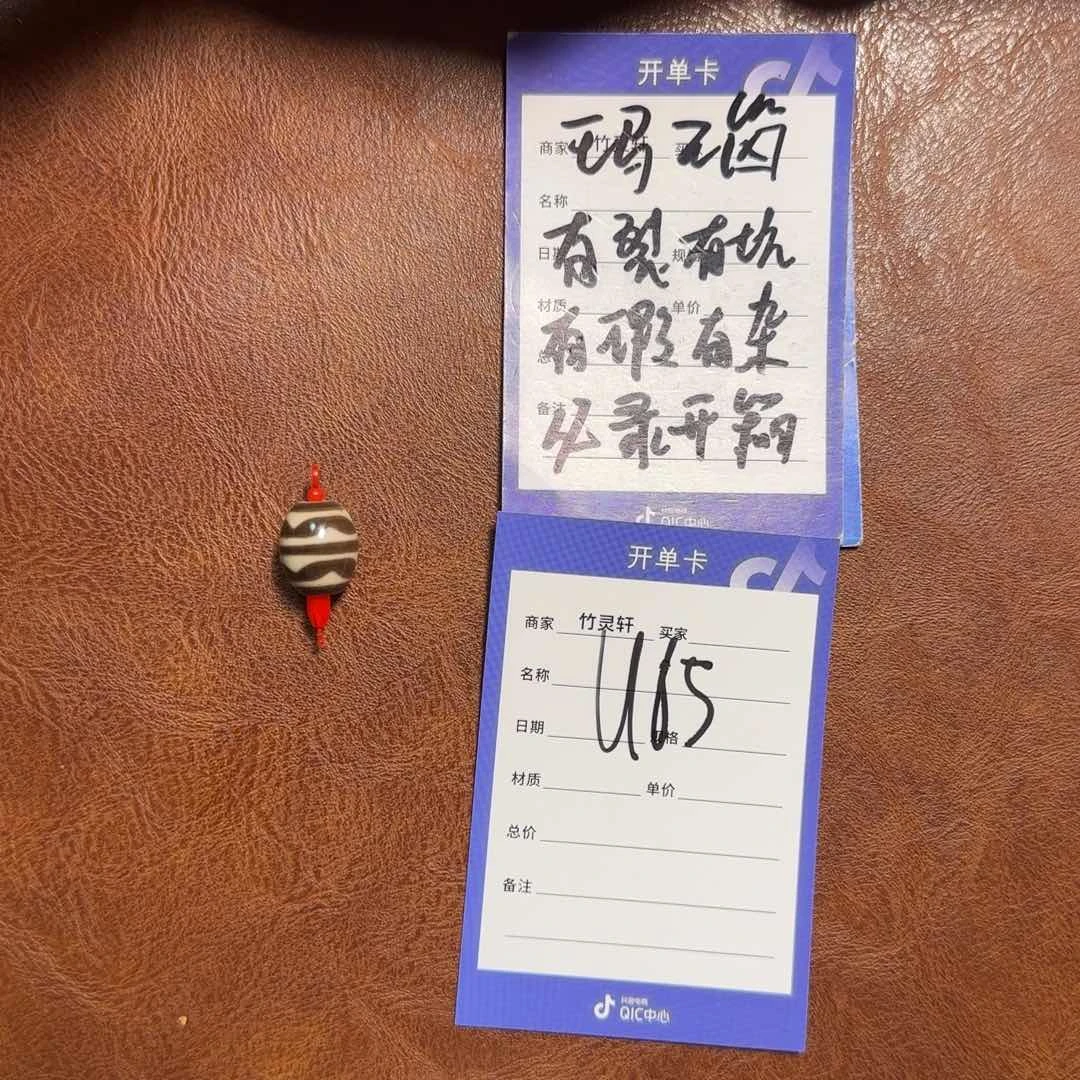 开单卡
玛瑙
商家 竹灵轩 买
名称
有裂有坑
日期 规
材质 单价
有瑕有杂
总
备注
必录开箱
抖音电商
QIC中心
开单卡
商家 竹灵轩 买家
名称
U65
日期 规格
材质 单价
总价
备注
抖音电商
QIC中心